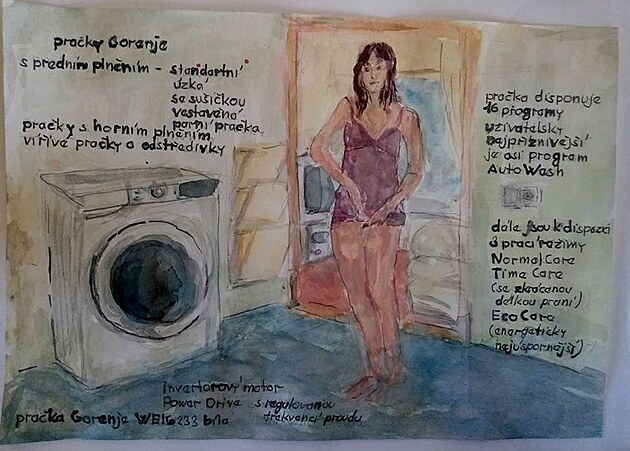 pračky Gorenje
s předním plněním - standartní
úzká
se sušičkou
vestavěná
parní pračka
pračky s horním plněním
vířivé pračky a odstředivky
pračka disponuje
16 programy
uživatelsky
nejpříznivější
je asi program
AutoWash
dále jsou k dispozici
3 prací režimy
NormalCare
Time Care
(se zkrácenou
délkou praní)
EcoCare
(energeticky
nejúspornější)
invertorový motor
Power Drive s regulovanou
frekvencí proudu
pračka Gorenje WEI6233 bílá